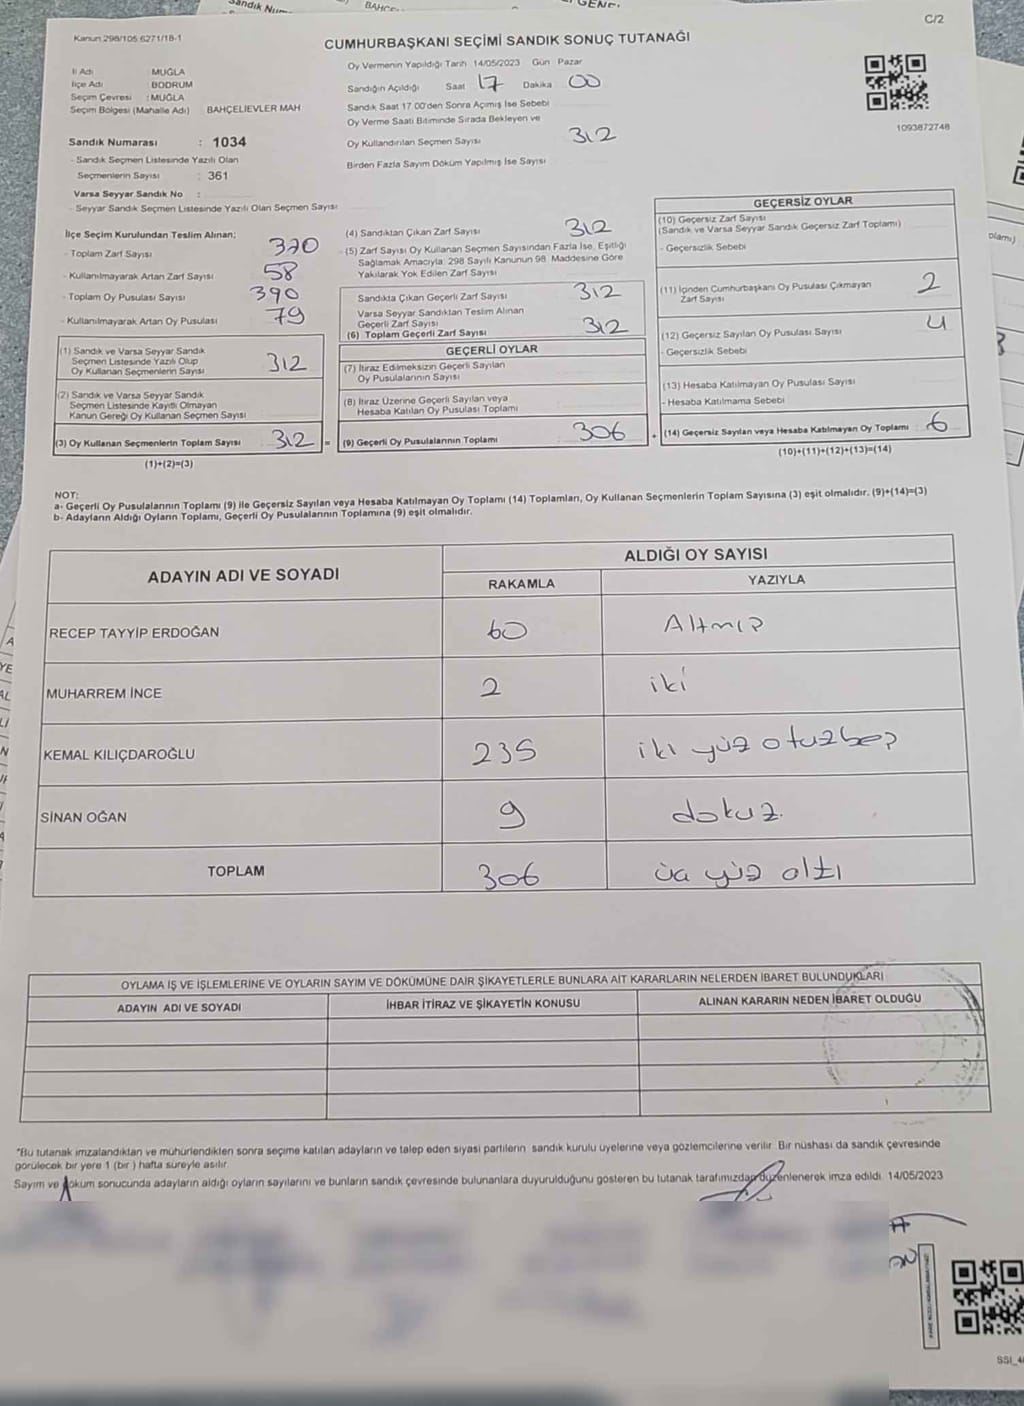 C/2
Kanun 298/105 6271/18-1
CUMHURBAŞKANI SEÇİMİ SANDIK SONUÇ TUTANAĞI
İl Adı : MUĞLA
İlçe Adı : BODRUM
Seçim Çevresi : MUĞLA
Seçim Bölgesi (Mahalle Adı) BAHÇELİEVLER MAH
Sandık Numarası : 1034
- Sandık Seçmen Listesinde Yazılı Olan
Seçmenlerin Sayısı : 361
Varsa Seyyar Sandık No :
- Seyyar Sandık Seçmen Listesinde Yazılı Olan Seçmen Sayısı
Oy Vermenin Yapıldığı Tarih 14/05/2023 Gün Pazar
Sandığın Açıldığı Saat 17 Dakika 00
Sandık Saat 17.00'den Sonra Açımış İse Sebebi
Oy Verme Saati Bitiminde Sırada Bekleyen ve
Oy Kullandırılan Seçmen Sayısı 312
Birden Fazla Sayım Döküm Yapılmış İse Sayısı
1093872748
İlçe Seçim Kurulundan Teslim Alınan;
- Toplam Zarf Sayısı 370
- Kullanılmayarak Artan Zarf Sayısı 58
- Toplam Oy Pusulası Sayısı 390
- Kullanılmayarak Artan Oy Pusulası 79
(1) Sandık ve Varsa Seyyar Sandık
Seçmen Listesinde Yazılı Olup
Oy Kullanan Seçmenlerin Sayısı 312
(2) Sandık ve Varsa Seyyar Sandık
Seçmen Listesinde Kayıtlı Olmayan
Kanun Gereği Oy Kullanan Seçmen Sayısı
(3) Oy Kullanan Seçmenlerin Toplam Sayısı 312 =
(1)+(2)=(3)
(4) Sandıktan Çıkan Zarf Sayısı 312
(5) Zarf Sayısı Oy Kullanan Seçmen Sayısından Fazla İse, Eşitliği
Sağlamak Amacıyla: 298 Sayılı Kanunun 98. Maddesine Göre
Yakılarak Yok Edilen Zarf Sayısı
Sandıkta Çıkan Geçerli Zarf Sayısı 312
Varsa Seyyar Sandıktan Teslim Alınan
Geçerli Zarf Sayısı
(6) Toplam Geçerli Zarf Sayısı 312
GEÇERLİ OYLAR
(7) İtiraz Edilmeksizin Geçerli Sayılan
Oy Pusulalarının Sayısı
(8) İtiraz Üzerine Geçerli Sayılan veya
Hesaba Katılan Oy Pusulası Toplamı
(9) Geçerli Oy Pusulalarının Toplamı 306 +
GEÇERSİZ OYLAR
(10) Geçersiz Zarf Sayısı
(Sandık ve Varsa Seyyar Sandık Geçersiz Zarf Toplamı)
- Geçersizlik Sebebi
(11) İçinden Cumhurbaşkanı Oy Pusulası Çıkmayan
Zarf Sayısı 2
(12) Geçersiz Sayılan Oy Pusulası Sayısı 4
- Geçersizlik Sebebi
(13) Hesaba Katılmayan Oy Pusulası Sayısı
- Hesaba Katılmama Sebebi
(14) Geçersiz Sayılan veya Hesaba Katılmayan Oy Toplamı 6
(10)+(11)+(12)+(13)=(14)
NOT:
a- Geçerli Oy Pusulalarının Toplamı (9) ile Geçersiz Sayılan veya Hesaba Katılmayan Oy Toplamı (14) Toplamları, Oy Kullanan Seçmenlerin Toplam Sayısına (3) eşit olmalıdır. (9)+(14)=(3)
b- Adayların Aldığı Oyların Toplamı, Geçerli Oy Pusulalarının Toplamına (9) eşit olmalıdır.
ADAYIN ADI VE SOYADI ALDIĞI OY SAYISI
RAKAMLA YAZIYLA
RECEP TAYYİP ERDOĞAN 60 Altmış
MUHARREM İNCE 2 iki
KEMAL KILIÇDAROĞLU 235 iki yüz otuzbeş
SİNAN OĞAN 9 dokuz
TOPLAM 306 üç yüz altı
OYLAMA İŞ VE İŞLEMLERİNE VE OYLARIN SAYIM VE DÖKÜMÜNE DAİR ŞİKAYETLERLE BUNLARA AİT KARARLARIN NELERDEN İBARET BULUNDUKLARI
ADAYIN ADI VE SOYADI İHBAR İTİRAZ VE ŞİKAYETİN KONUSU ALINAN KARARIN NEDEN İBARET OLDUĞU
"Bu tutanak imzalandıktan ve mühürlendikten sonra seçime katılan adayların ve talep eden siyasi partilerin sandık kurulu üyelerine veya gözlemcilerine verilir. Bir nüshası da sandık çevresinde
görülecek bir yere 1 (bir ) hafta süreyle asılır
Sayım ve döküm sonucunda adayların aldığı oyların sayılarını ve bunların sandık çevresinde bulunanlara duyurulduğunu gösteren bu tutanak tarafımızdan düzenlenerek imza edildi. 14/05/2023